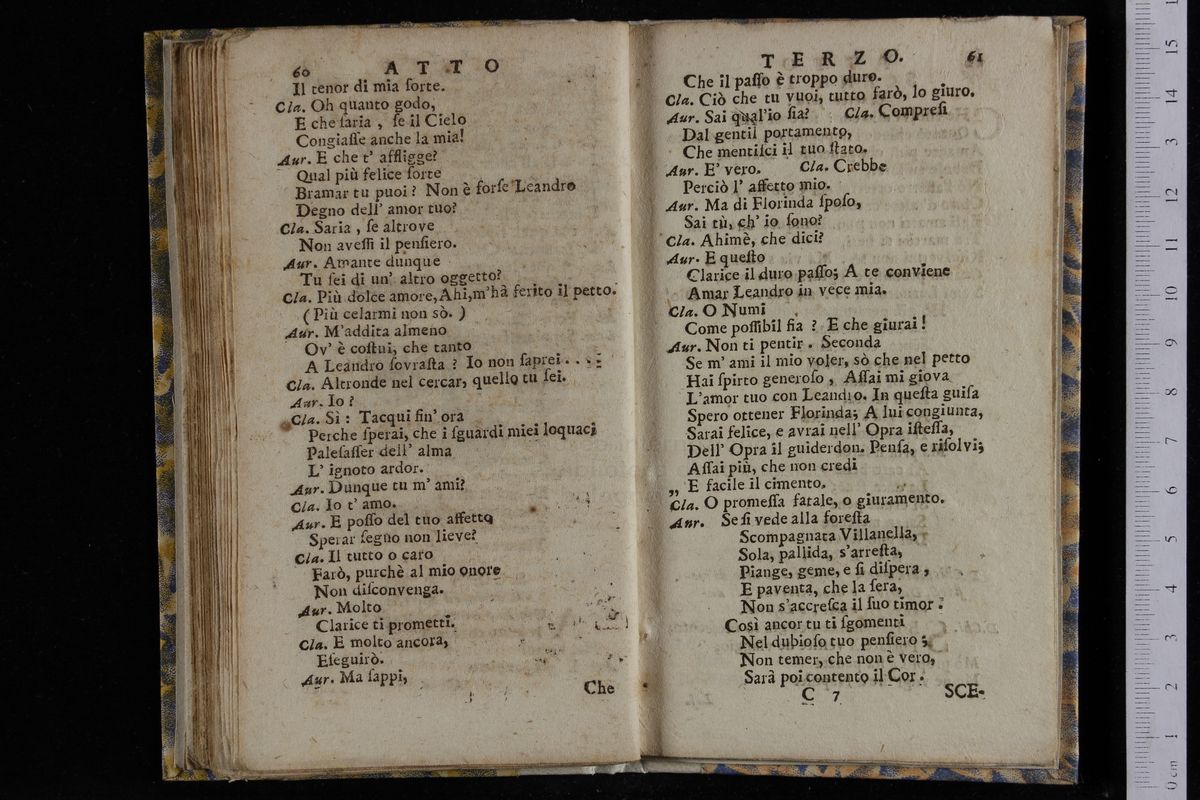 60 ATTO
Il tenor di mia ſorte.
Cla. Oh quanto godo,
E che ſaria , ſe il Cielo
Congiaſſe anche la mia!
Aur. E che t' affligge?
Qual più felice ſorte
Bramar tu puoi ? Non è forſe Leandro
Degno dell' amor tuo?
Cla. Saria , ſe altrove
Non aveſſi il penſiero.
Aur. Amante dunque
Tu ſei di un' altro oggetto?
Cla. Più dolce amore, Ahi, m'hà ferito il petto.
( Più celarmi non sò. )
Aur. M'addita almeno
Ov' è coſtui, che tanto
A Leandro ſovraſta ? Io non ſaprei . . . .
Cla. Altronde nel cercar, quello tu ſei.
Aur. Io ?
Cla. Sì : Tacqui fin' ora
Perche ſperai, che i ſguardi miei loquaci
Paleſaſſer dell' alma
L' ignoto ardor.
Aur. Dunque tu m' ami?
Cla. Io t' amo.
Aur. E poſſo del tuo affetto
Sperar ſegno non lieve?
Cla. Il tutto o caro
Farò, purchè al mio onore
Non diſconvenga.
Aur. Molto
Clarice ti prometti.
Cla. E molto ancora,
Eſeguirò.
Aur. Ma ſappi,
Che
TERZO. 61
Che il paſſo è troppo duro.
Cla. Ciò che tu vuoi, tutto farò, lo giuro.
Aur. Sai qual'io ſia? Cla. Compreſi
Dal gentil portamento,
Che mentiſci il tuo ſtato.
Aur. E' vero. Cla. Crebbe
Perciò l' affetto mio.
Aur. Ma di Florinda ſpoſo,
Sai tù, ch' io ſono?
Cla. Ahimè, che dici?
Aur. E queſto
Clarice il duro paſſo; A te conviene
Amar Leandro in vece mia.
Cla. O Numi
Come poſſibil ſia ? E che giurai !
Aur. Non ti pentir . Seconda
Se m' ami il mio voler, sò che nel petto
Hai ſpirto generoſo , Aſſai mi giova
L'amor tuo con Leandro. In queſta guiſa
Spero ottener Florinda; A lui congiunta,
Sarai felice, e avrai nell' Opra iſteſſa,
Dell' Opra il guiderdon. Penſa, e riſolvi;
Aſſai più, che non credi
„ E facile il cimento.
Cla. O promeſſa fatale, o giuramento.
Aur. Se ſi vede alla foreſta
Scompagnata Villanella,
Sola, pallida, s'arreſta,
Piange, geme, e ſi diſpera ,
E paventa, che la ſera,
Non s'accreſca il ſuo timor .
Così ancor tu ti ſgomenti
Nel dubioſo tuo penſiero ;
Non temer, che non è vero,
Sarà poi contento il Cor .
C 7 SCE-